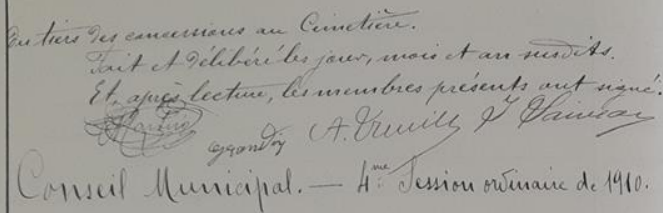 du tiers des concessions au Cimetière.
Fait et délibéré les jour, mois et an susdits.
Et, après lecture, les membres présents ont signé.
A.
Conseil Municipal. — 4.me Session ordinaire de 1910.